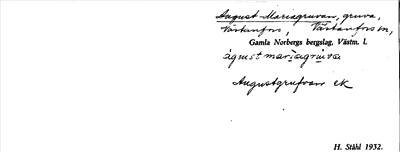 August Mariagruvan, gruva,
Västanfors, Västanfors sn,
Gamla Norbergs bergslag, Västm. l.
águst marìagrùva
Augustgrufvan ek
H. Ståhl 1932.